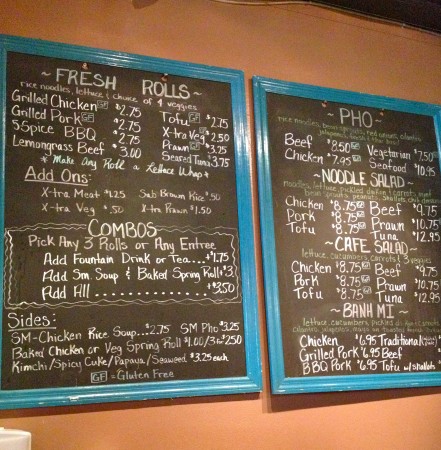 ~ FRESH ROLLS ~
rice noodles, lettuce & choice of 4 veggies
Grilled Chicken GF $2.75 Tofu GF $2.75
Grilled Pork GF $2.75 X-tra Veg GF $2.50
5 Spice BBQ $2.75 Prawn GF $3.25
Lemongrass Beef $3.00 Seared Tuna $3.75
* Make Any Roll a Lettuce Wrap *
Add Ons:
X-tra Meat $1.25 Sub Brown Rice $.50
X-tra Veg $.50 X-tra Prawn $1.50
COMBOS
Pick Any 3 Rolls or Any Entree
Add Fountain Drink or Tea....+$1.75
Add Sm. Soup & Baked Spring Roll+$3.
Add All ..............+$3.50
Sides:
SM-Chicken Rice Soup...$2.75 SM Pho $3.25
Baked Chicken or Veg Spring Roll $1.00/3 for $2.50
Kimchi/Spicy Cuke/Papaya/Seaweed $3.25 each
GF = Gluten Free
~ PHO ~
Beef $8.50 GF Vegetarian $7.50
Chicken $7.95 GF Seafood $10.95
~ NOODLE SALAD ~
Chicken $8.75 GF Beef $9.75
Pork $8.75 GF Prawn $10.75
Tofu $8.75 GF Tuna $12.95
~ CAFE SALAD ~
lettuce, cucumbers, carrots & 3 veggies
Chicken $8.75 GF Beef $9.75
Pork $8.75 GF Prawn $10.75
Tofu $8.75 GF Tuna $12.95
~ BANH MI ~
Chicken $6.95 Traditional
Grilled Pork $6.95 Beef
BBQ Pork $6.95 Tofu w/shallots